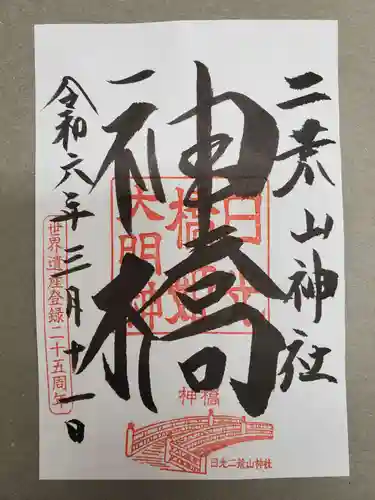 二荒山神社
神橋
令和六年三月十一日
世界遺産登録二十五周年
神橋
日光二荒山神社